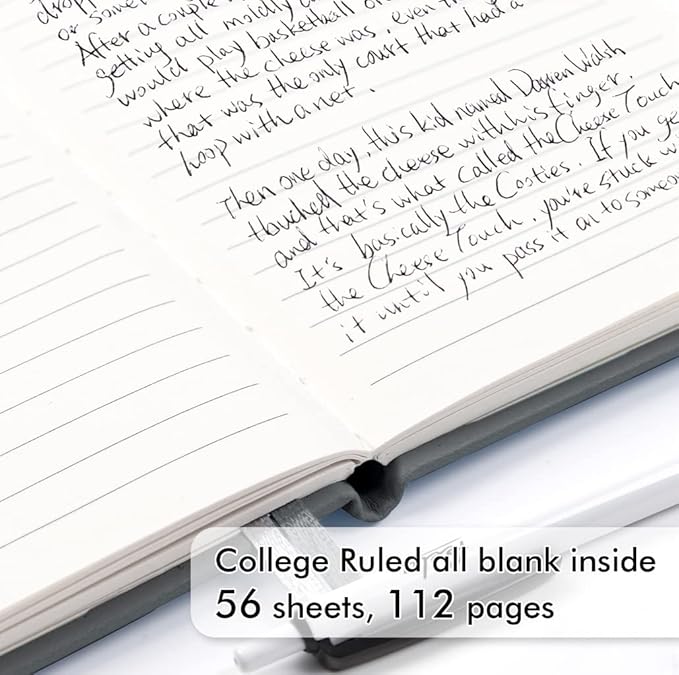 dropp
or somet
After a couple
getting all moldly a
would play basketball o
where the cheese was, even th
that was the only court that had a
hoop with a net.
Then one day, this kid named Darren Walsh
touched the cheese with his finger.
and that's what called the Cheese Touch
It's basically the Cooties. If you ge
the Cheese Touch, you're stuck wi
it until you pass it on to someon
College Ruled all blank inside
56 sheets, 112 pages